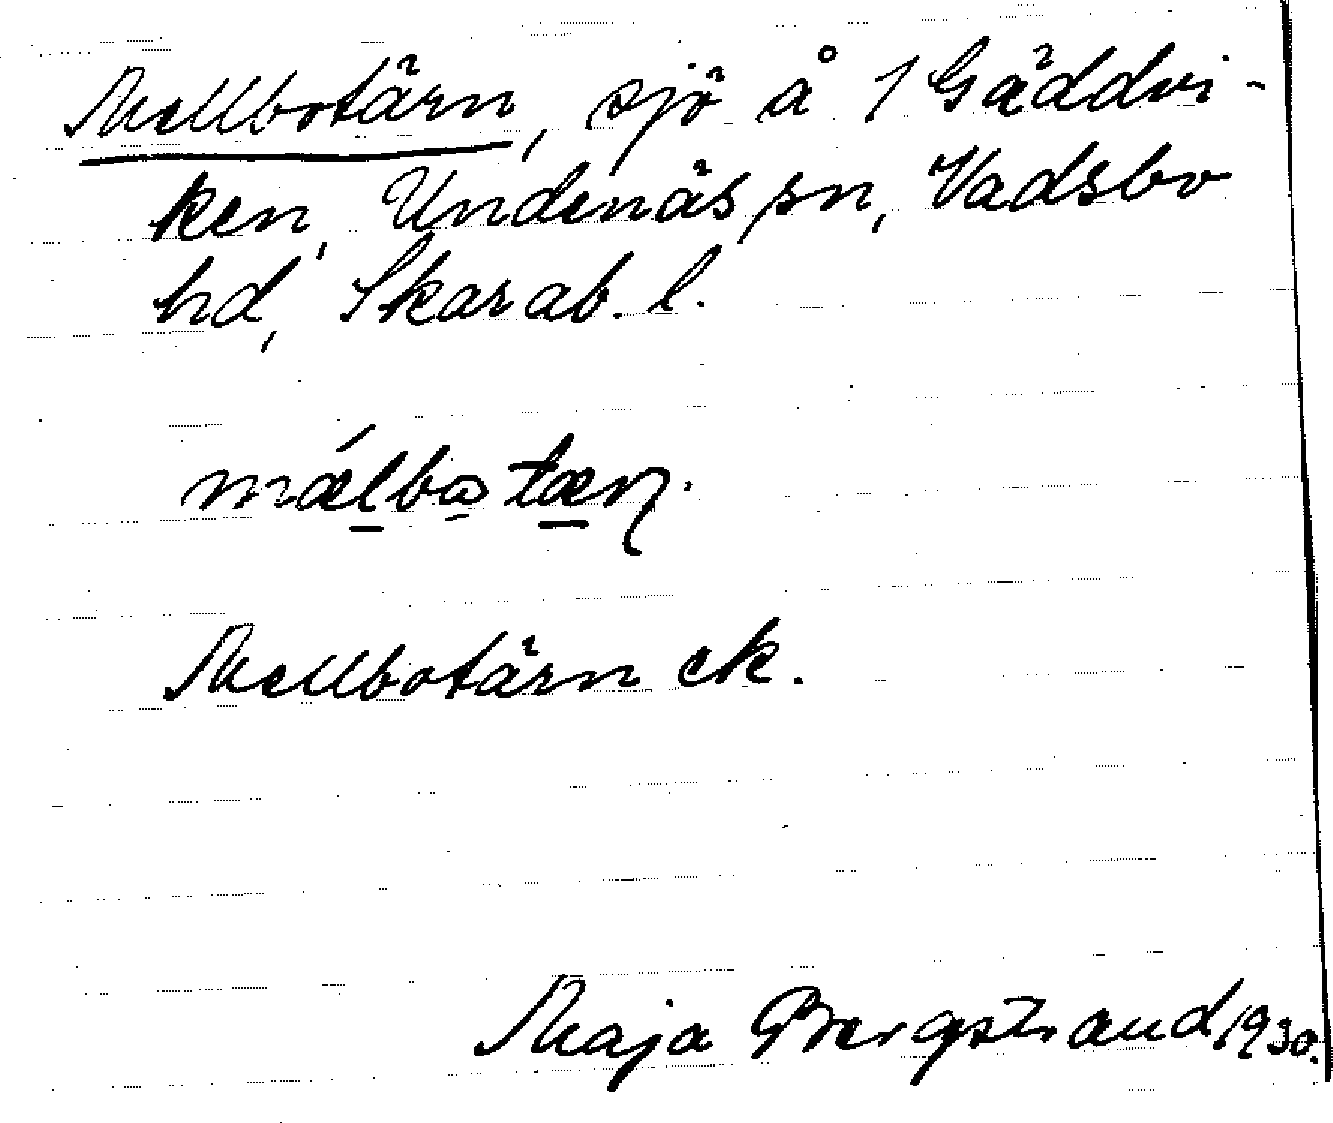 Mellbotärn, sjö å 1 Gäddvi-
ken, Undenäs sn, Vadsbo
hd, Skarab. l.
mǽlbotæɳ.
Mellbotärn ek.
Maja Bergstrand 1930.